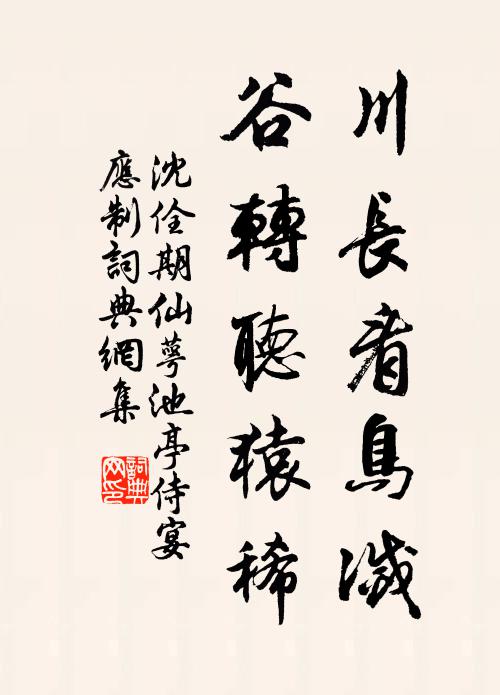 川長看鳥滅
谷轉聽猿稀
沈佺期仙萼池亭侍宴
應制詞典網集
詞典
网印